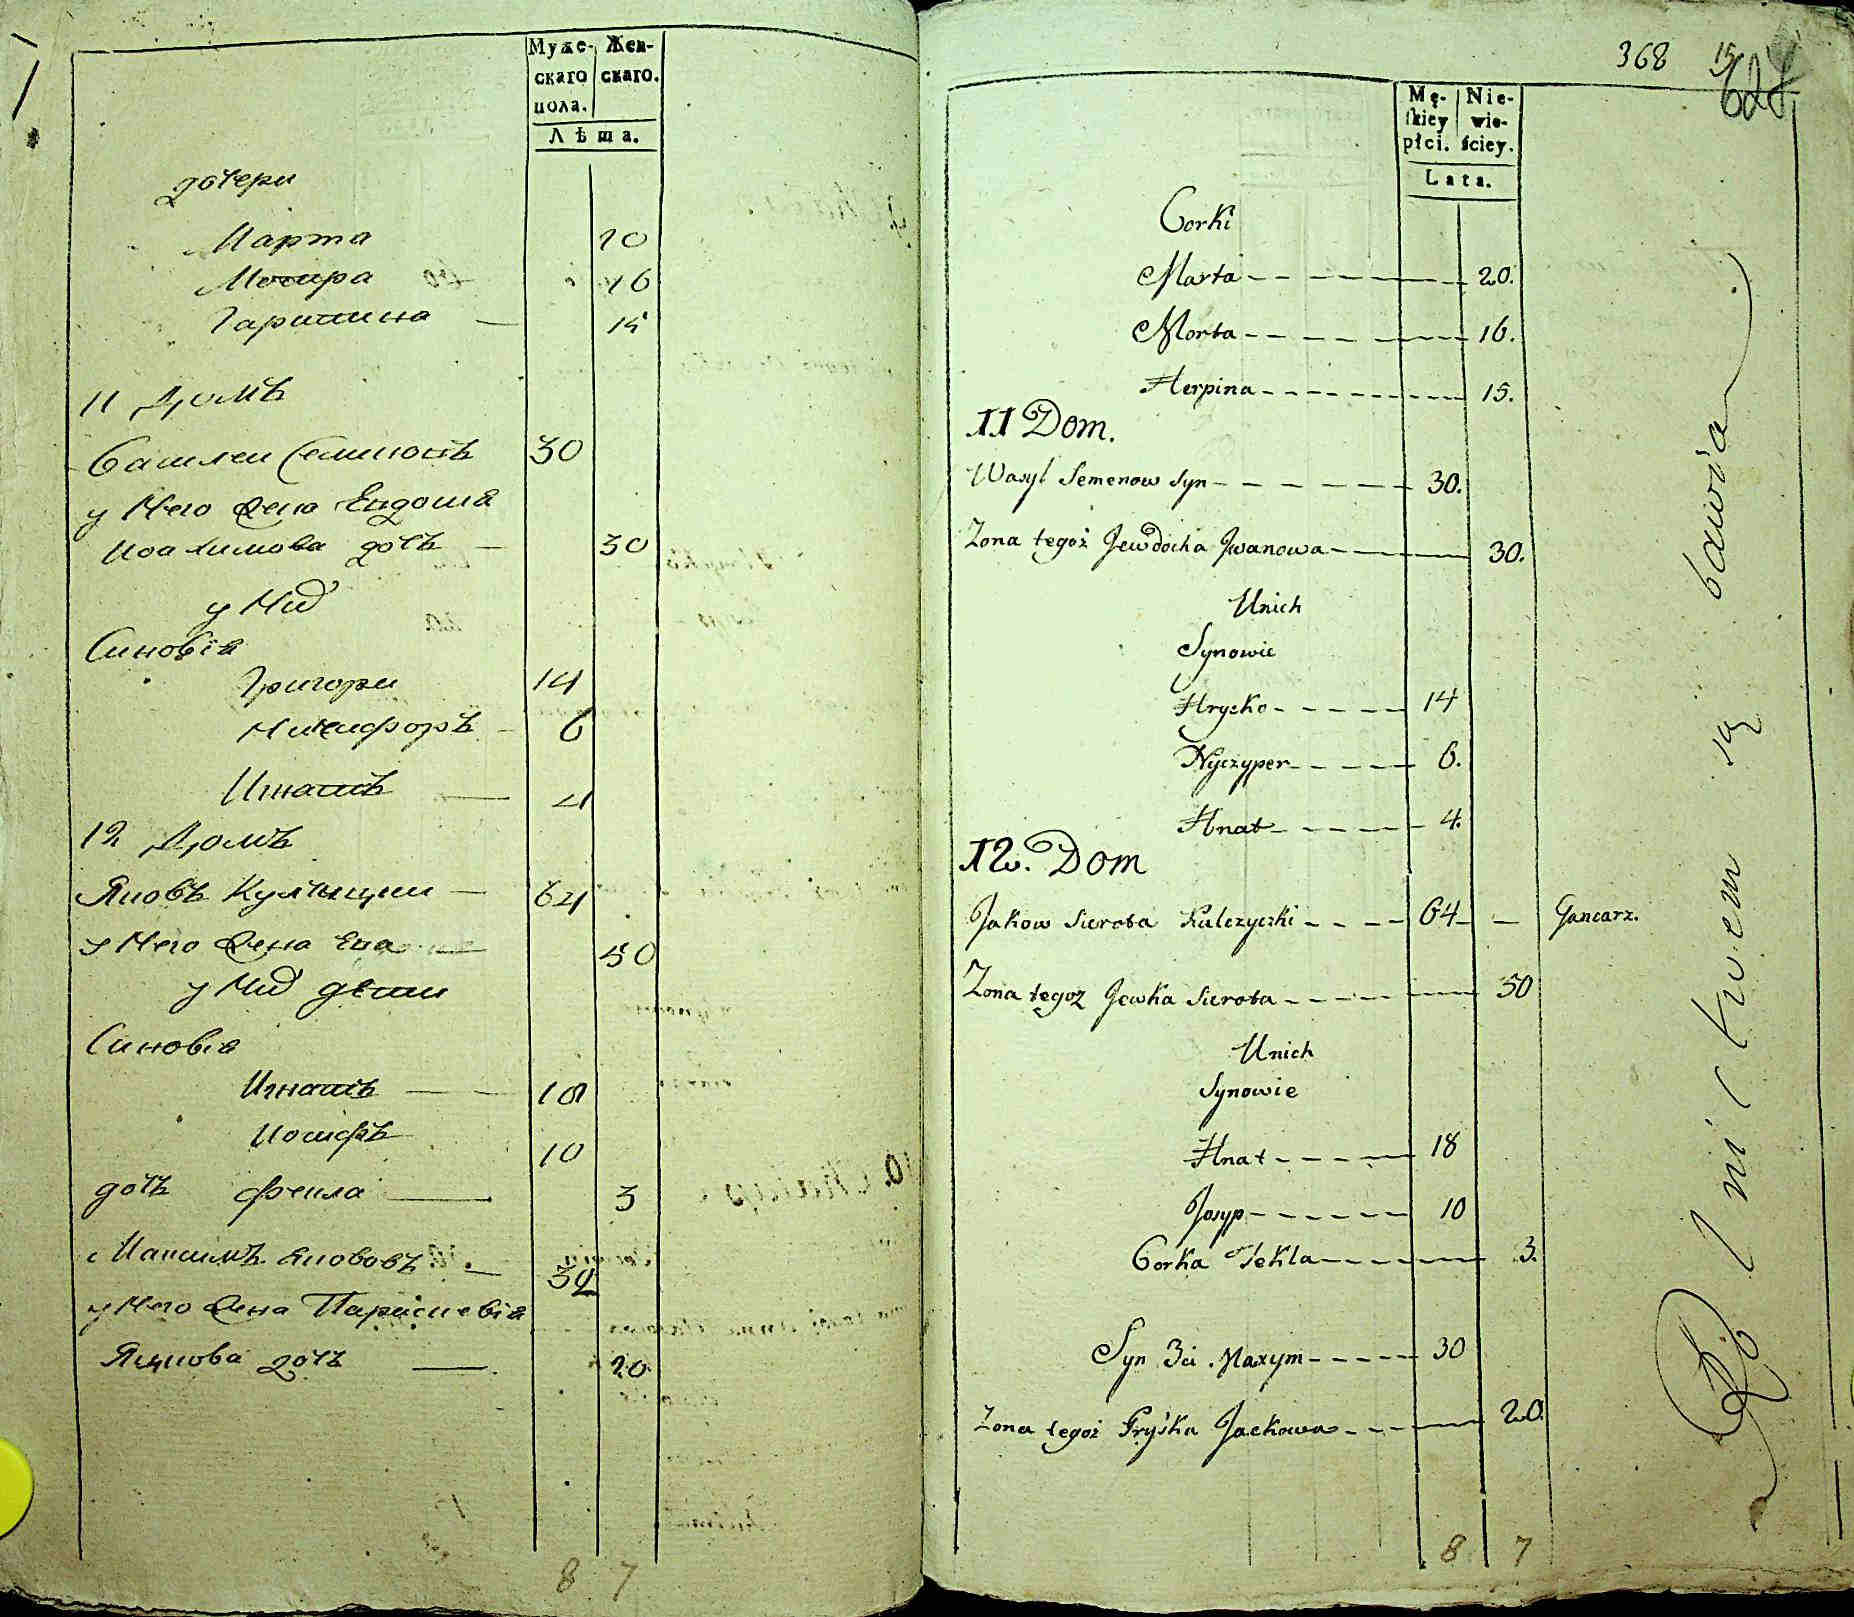 Муже- Жен-
скаго скаго.
пола.
Лѣта.
дочери
Марта 20
Мотря 16
Гарпина 15
11 Домъ
Василеи Семиновъ 30
у Него Жена Евдошя
Иоакимова дочь 30
у Них
Синовія
Григори 14
Никифоръ 6
Игнатъ 4
12 Домъ
Яковъ Кулчицки 64
у Него Жена Ева 50
у Них дети
Синовія
Игнатъ 18
Иосифъ 10
дочь Фекла 3
Максимъ Якововъ 32
у Него Жена Параскевія
Яцкова дочь 20
8 7
368 15
628
Mę- Nie-
skiey wie-
płci. ściey.
Lata.
Corki
Marta 20.
Morta 16.
Herpina 15.
11 Dom.
Wasyl Semenow Syn 30.
Zona tegoż Jewdocha Jwanowa 30.
Unich
Synowie
Hrycko 14
Nyczyper 6.
Hnat 4.
12. Dom
Jakow Sierota Kulczycki 64 Gancarz.
Zona tegoż Jewka Sierota 50
Unich
Synowie
Hnat 18
Josyp 10
Corka Tekla 3.
Syn 3ci Maxym 30
Zona tegoż Pryśka Jackowa 20.
8 7